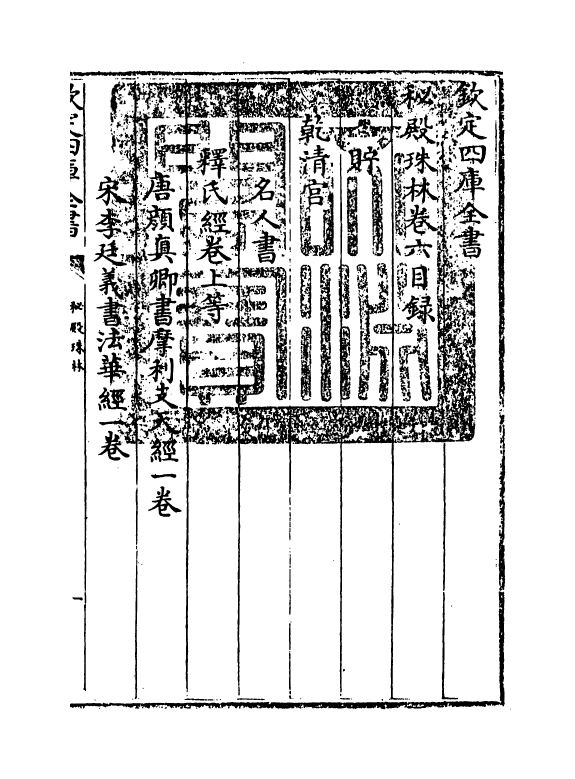 欽定四庫全書
秘殿珠林卷六目録
貯
乾清宮
名人書
釋氏經卷上等
唐顔真卿書摩利支天經一卷
宋李廷義書法華經一卷
欽定四庫全書
秘殿珠林
一